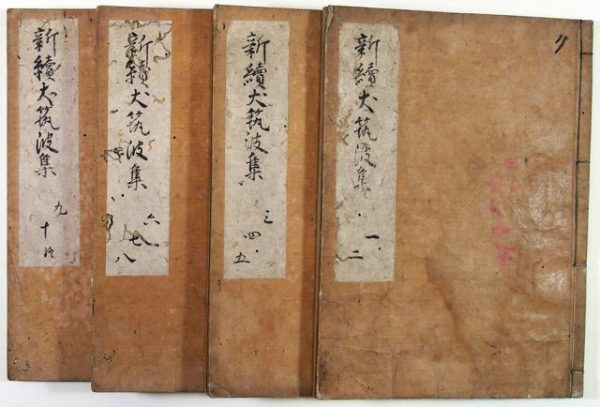 新續犬筑波集 一 二
新續犬筑波集 三 四 五
新續犬筑波集 六 七 八
新續犬筑波集 九 十